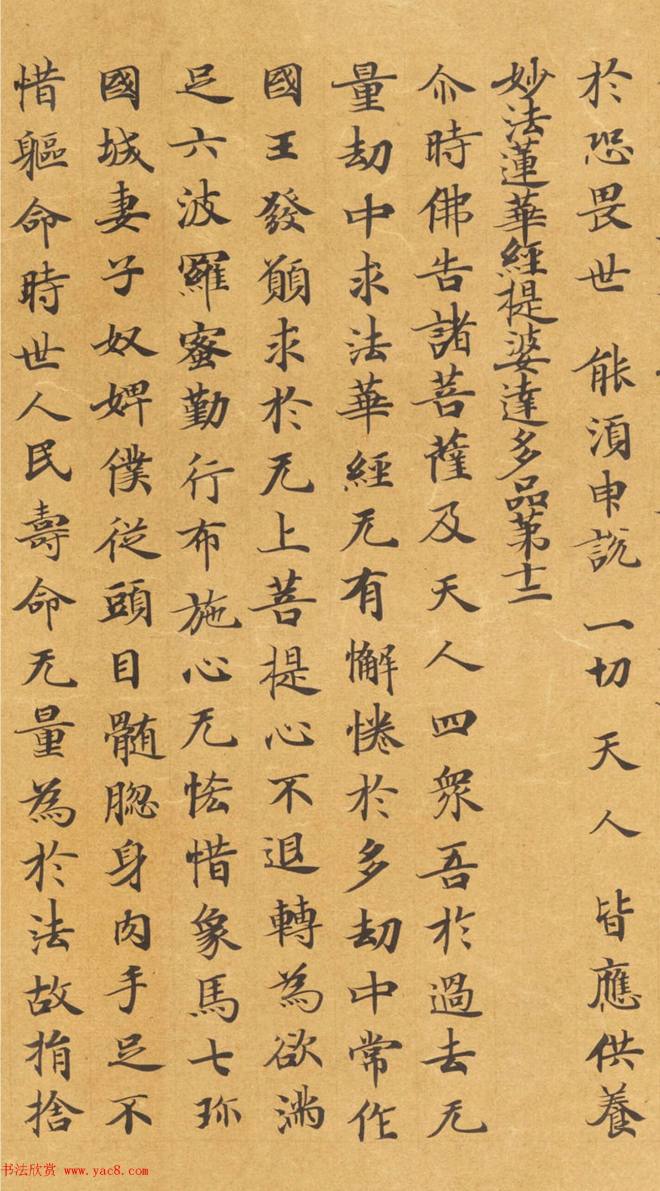 於恐畏世 能須申説 一切天人 皆應供養
妙法蓮華經提婆達多品第十二
尒時佛告諸菩薩及天人四衆吾於過去无
量劫中求法華經无有懈惓於多劫中常作
國王發願求於无上菩提心不退轉為欲満
足六波羅蜜勤行布施心无悋惜象馬七珎
國城妻子奴婢僕從頭目髄𦛁身肉手足不
惜軀命時世人民壽命无量為於法故捐捨
书法欣赏 www.yac8.com